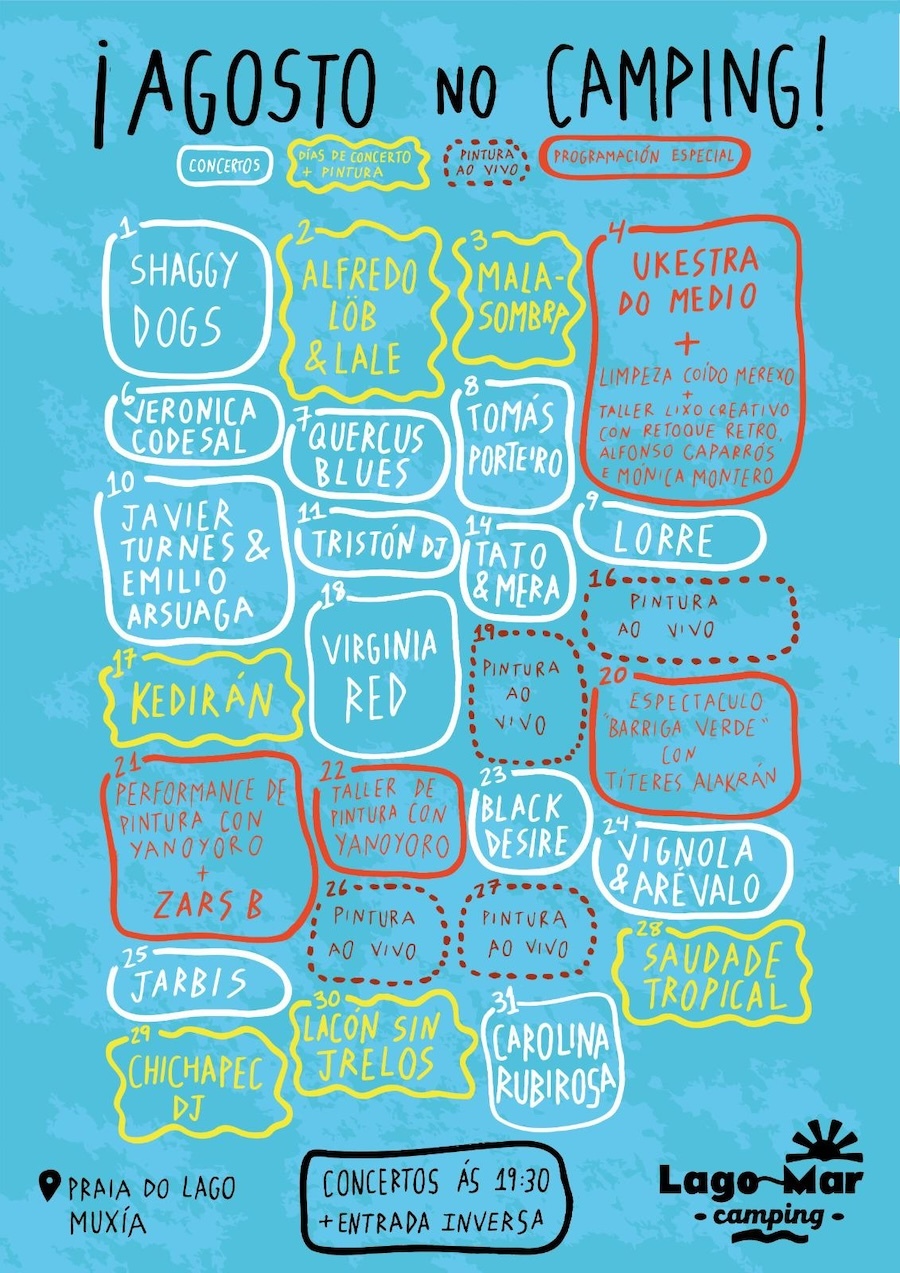 ¡AGOSTO NO CAMPING!
CONCERTOS
DÍAS DE CONCERTO
+ PINTURA
PINTURA
AO VIVO
PROGRAMACIÓN ESPECIAL
1
SHAGGY
DOGS
2
ALFREDO
LÖB
& LALE
3
MALA-
SOMBRA
4
UKESTRA
DO MEDIO
+
LIMPEZA COÍDO MEREXO
+
TALLER LIXO CREATIVO
CON RETOQUE RETRO,
ALFONSO CAPARRÓS
E MÓNICA MONTERO
6
VERONICA
CODESAL
7
QUERCUS
BLUES
8
TOMÁS
PORTEIRO
9
LORRE
10
JAVIER
TURNES &
EMILIO
ARSUAGA
11
TRISTÓN DJ
14
TATO
& MERA
16
PINTURA
AO VIVO
17
KEDIRÁN
18
VIRGINIA
RED
19
PINTURA
AO
VIVO
20
ESPECTACULO
"BARRIGA VERDE"
CON
TÍTERES ALAKRÁN
21
PERFORMANCE DE
PINTURA CON
YANOYORO
+
ZARS B
22
TALLER DE
PINTURA CON
YANOYORO
23
BLACK
DESIRE
24
VIGNOLA
& ARÉVALO
25
JARBIS
26
PINTURA
AO VIVO
27
PINTURA
AO VIVO
28
SAUDADE
TROPICAL
29
CHICHAPEC
DJ
30
LACÓN SIN
JRELOS
31
CAROLINA
RUBIROSA
PRAIA DO LAGO
MUXÍA
CONCERTOS ÁS 19:30
+ ENTRADA INVERSA
Lago~Mar
- camping -